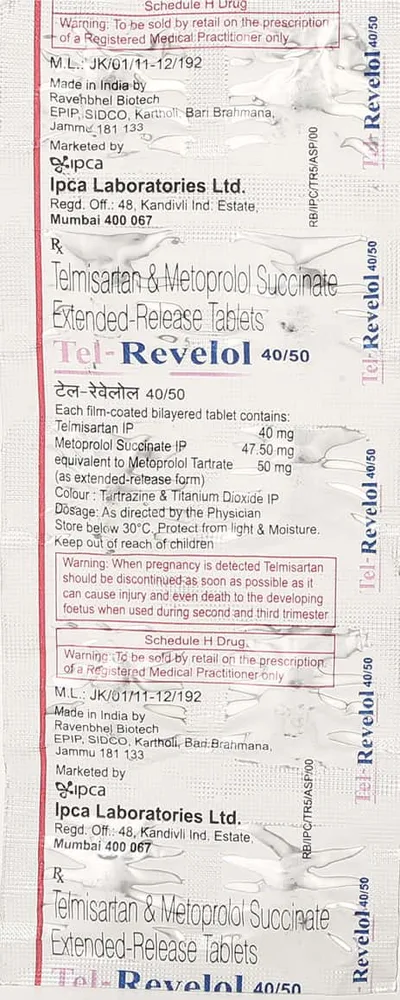 Schedule H Drug
Warning: To be sold by retail on the prescription
of a Registered Medical Practitioner only
M.L.: JK/01/11-12/192
Made in India by
Ravenbhel Biotech
EPIP, SIDCO, Kartholi, Bari Brahmana,
Jammu 181 133
Marketed by
ipca
Ipca Laboratories Ltd.
Regd. Off.: 48, Kandivli Ind. Estate,
Mumbai 400 067
RB/IPC/TR5/ASP/00
Tel-Revelol 40/50
Rx
Telmisartan & Metoprolol Succinate
Extended-Release Tablets
Tel-Revelol 40/50
Tel-Revelol 40/50
टेल-रेवेलोल 40/50
Each film-coated bilayered tablet contains:
Telmisartan IP 40 mg
Metoprolol Succinate IP 47.50 mg
equivalent to Metoprolol Tartrate 50 mg
(as extended-release form)
Colour : Tartrazine & Titanium Dioxide IP
Dosage: As directed by the Physician
Store below 30°C. Protect from light & Moisture.
Keep out of reach of children
Tel-Revelol 40/50
Warning: When pregnancy is detected Telmisartan
should be discontinued as soon as possible as it
can cause injury and even death to the developing
foetus when used during second and third trimester
Schedule H Drug
Warning: To be sold by retail on the prescription
of a Registered Medical Practitioner only
M.L.: JK/01/11-12/192
Made in India by
Ravenbhel Biotech
EPIP, SIDCO, Kartholi, Bari Brahmana,
Jammu 181 133
Marketed by
ipca
Ipca Laboratories Ltd.
Regd. Off.: 48, Kandivli Ind. Estate,
Mumbai 400 067
RB/IPC/TR5/ASP/00
Tel-Revelol 40/50
Rx
Telmisartan & Metoprolol Succinate
Extended-Release Tablets
Tel-Revelol 40/50
Revelol 40/50